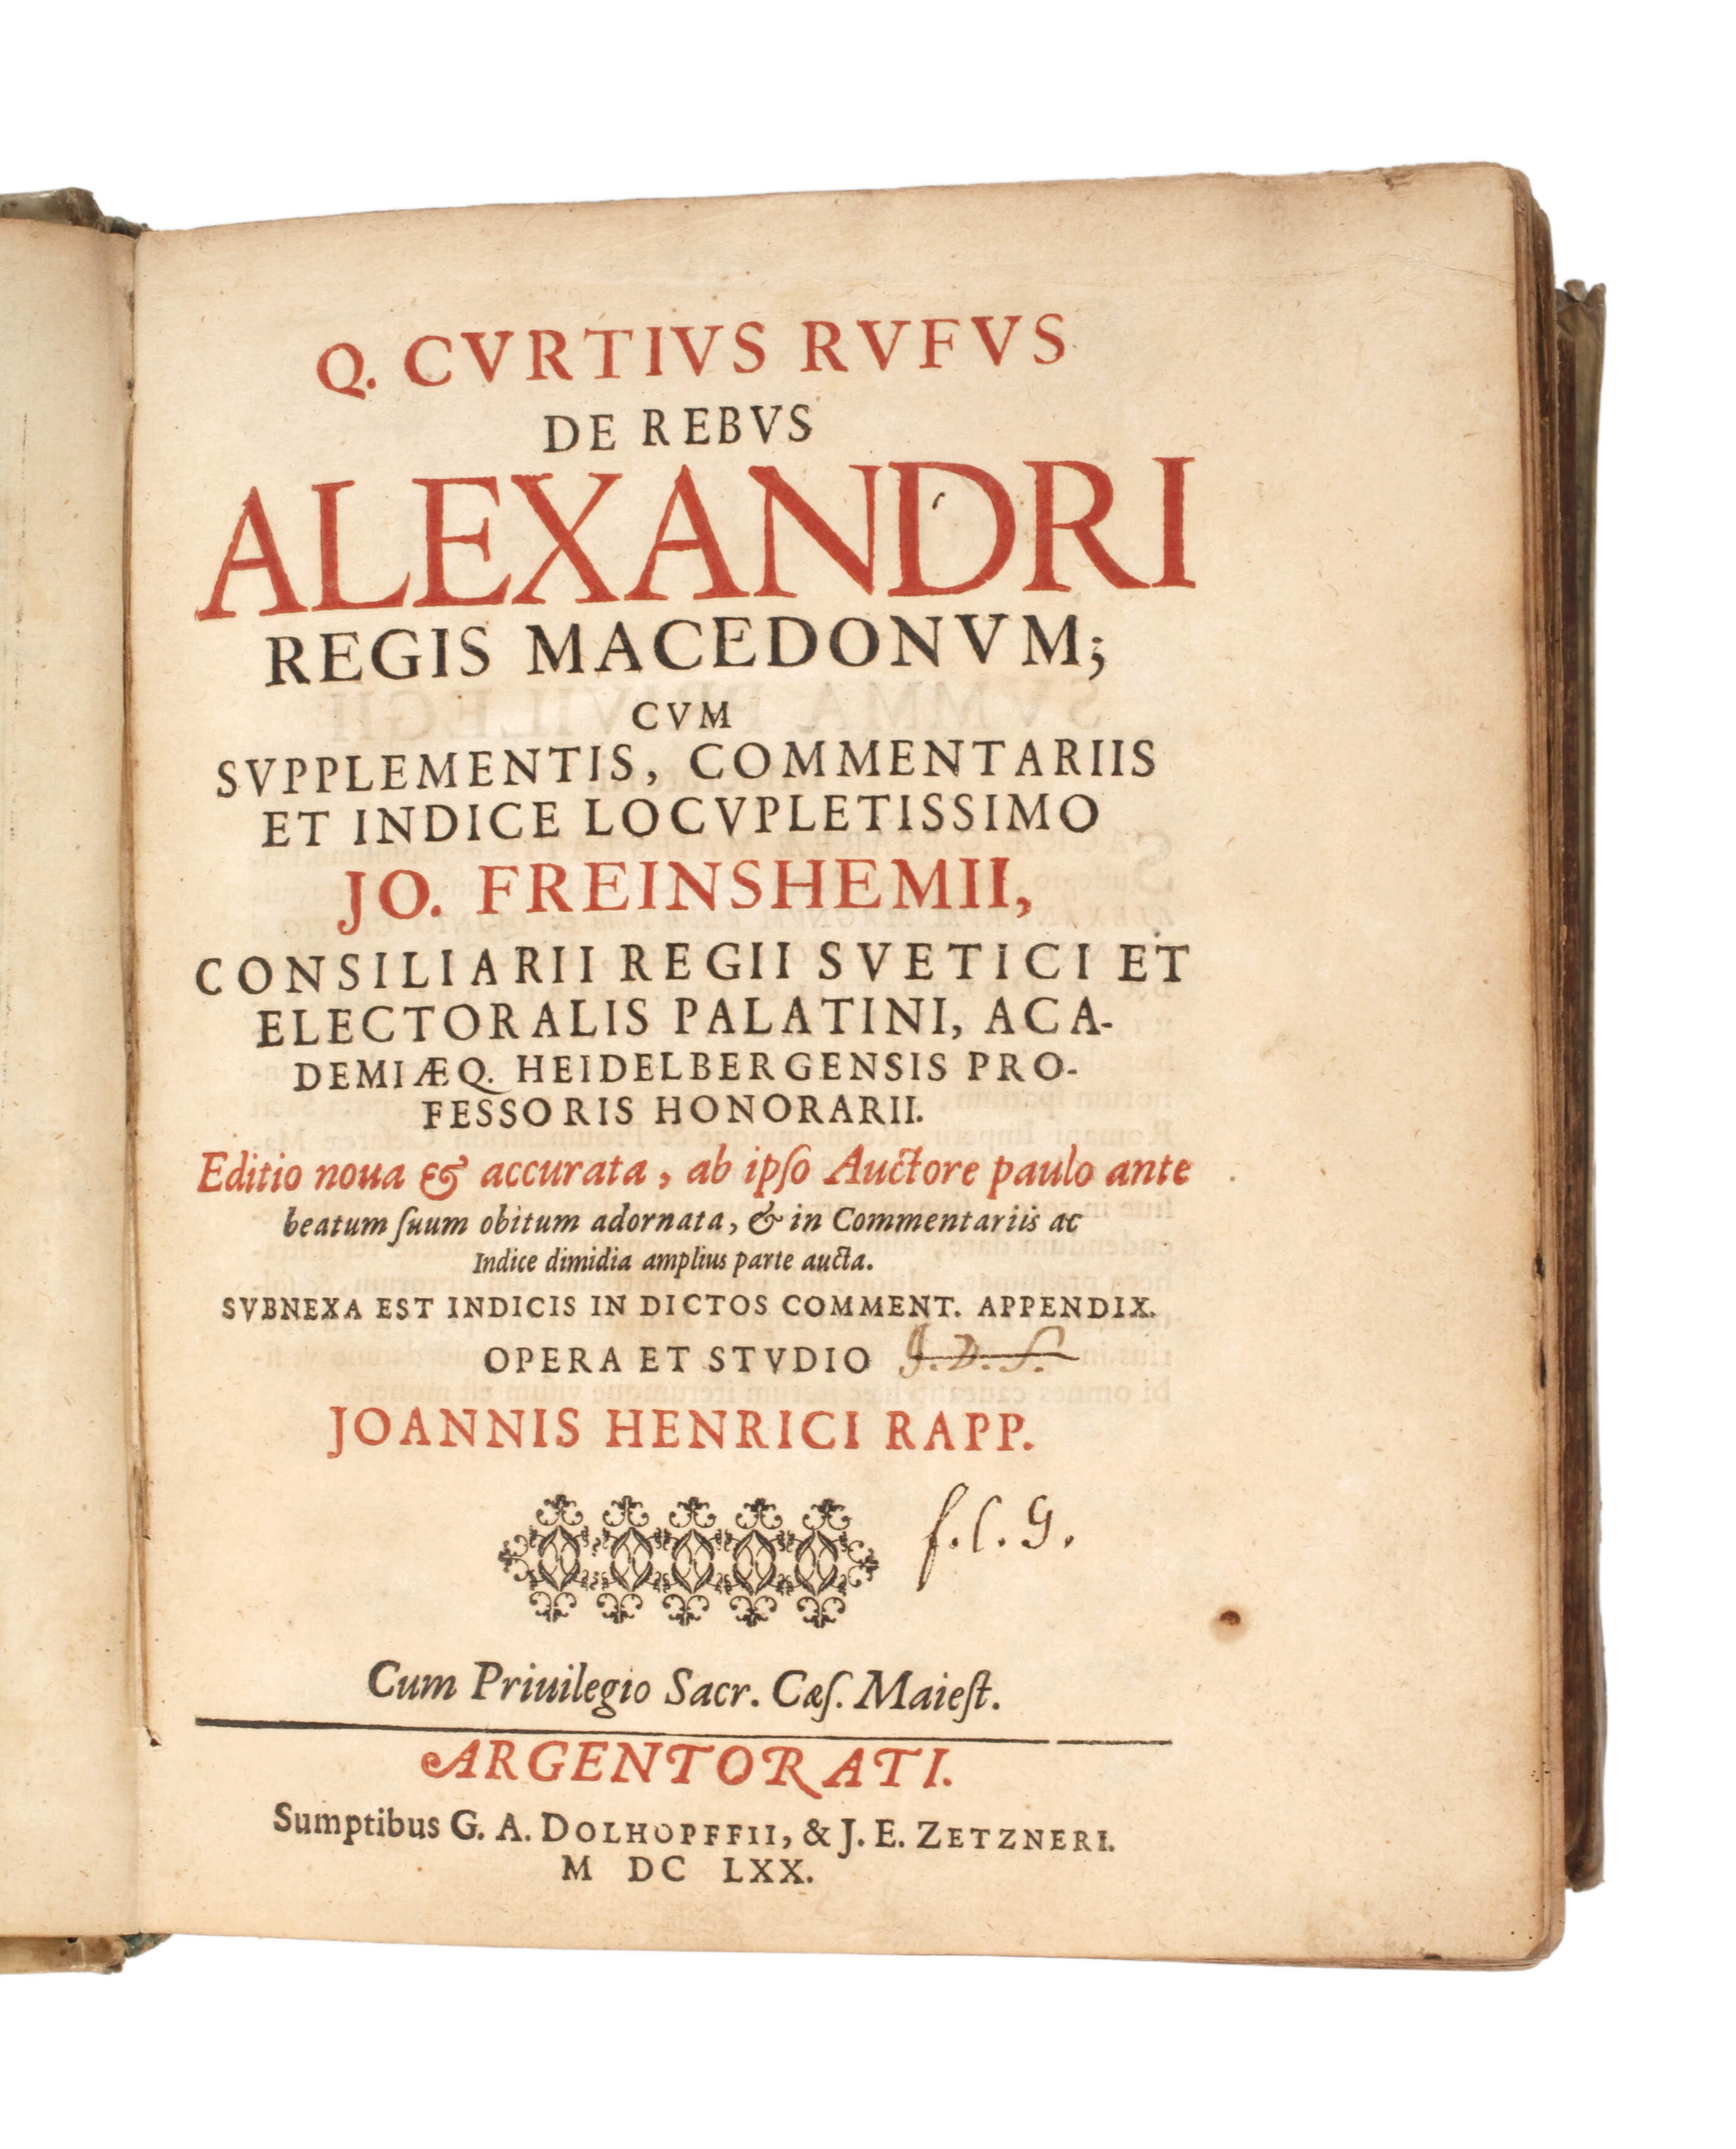 Q. CVRTIVS RVFVS
DE REBVS
ALEXANDRI
REGIS MACEDONVM;
CVM
SVPPLEMENTIS, COMMENTARIIS
ET INDICE LOCVPLETISSIMO
JO. FREINSHEMII,
CONSILIARII REGII SVETICI ET
ELECTORALIS PALATINI, ACA-
DEMIÆQ. HEIDELBERGENSIS PRO-
FESSORIS HONORARII.
Editio noua & accurata, ab ipſo Auctore paulo ante
beatum ſuum obitum adornata, & in Commentariis ac
Indice dimidia amplius parte aucta.
SVBNEXA EST INDICIS IN DICTOS COMMENT. APPENDIX.
OPERA ET STVDIO J. D. S.
JOANNIS HENRICI RAPP.
f. l. G.
Cum Priuilegio Sacr. Cæſ. Maieſt.
ARGENTORATI.
Sumptibus G. A. DOLHOPFFII, & J. E. ZETZNERI.
M DC LXX.